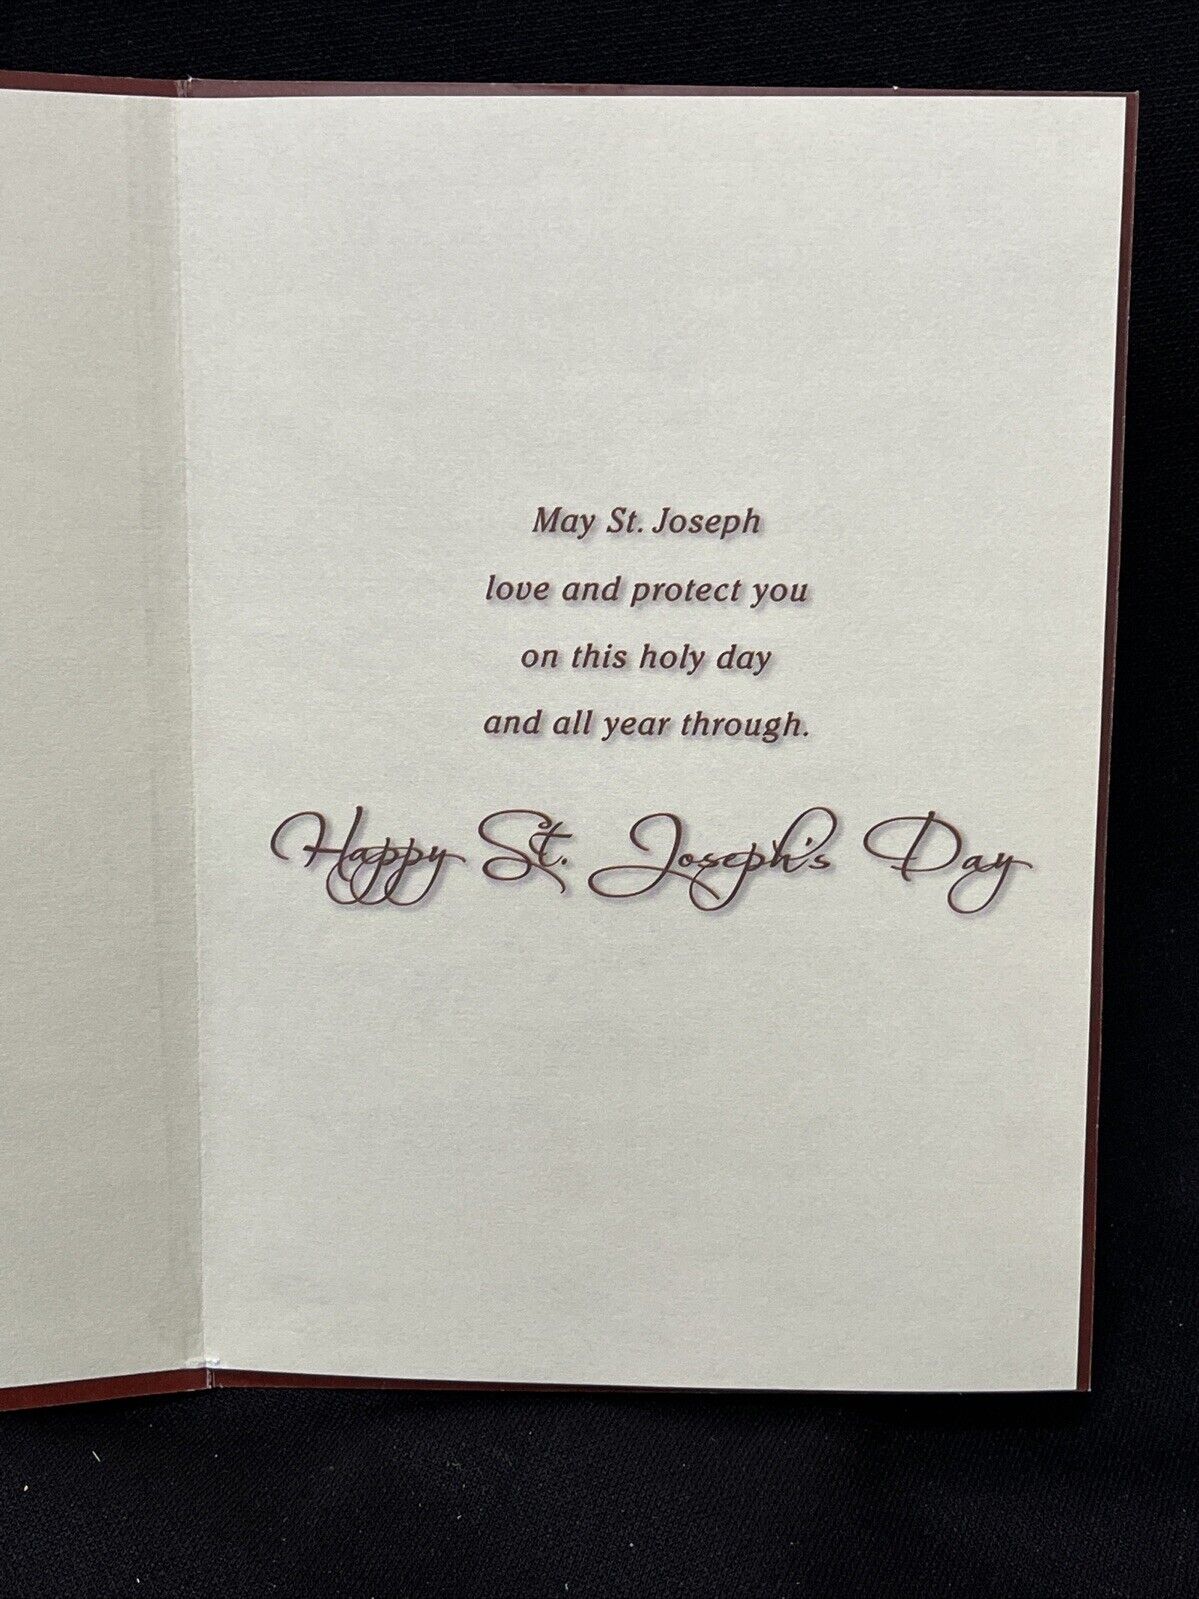 May St. Joseph
love and protect you
on this holy day
and all year through.
Happy St. Joseph's Day